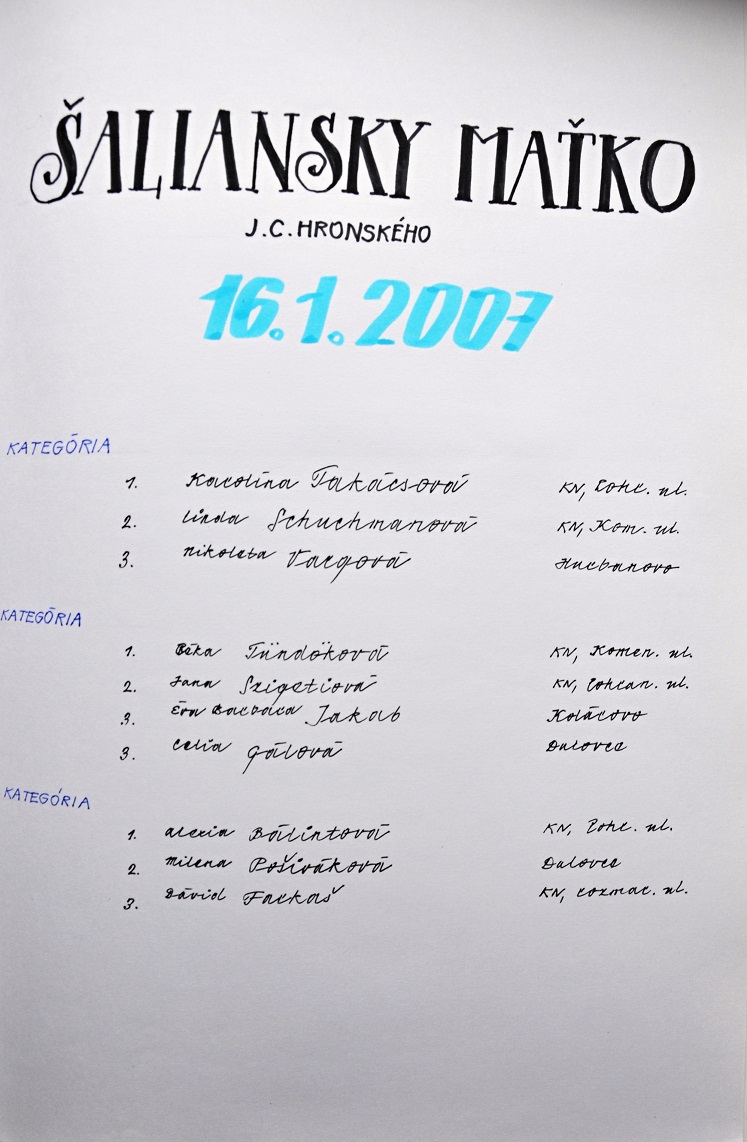 ŠALIANSKY MAŤKO
J.C.HRONSKÉHO
16.1.2007
KATEGÓRIA
1. Karolína Takácsová KN, Pohr. ul.
2. Linda Schuchmanová KN, Kom. ul.
3. Nikoleta Vargová Hurbanovo
KATEGÓRIA
1. Réka Tündöková KN, Komen. ul.
2. Jana Szigetiová KN, Pohran. ul.
3. Éva Barbara Jakab Kolárovo
3. Celia Gálová Dulovce
KATEGÓRIA
1. Alexia Bálintová KN, Pohr. ul.
2. Milena Pošiváková Dulovce
3. Dávid Farkaš KN, rozmar. ul.